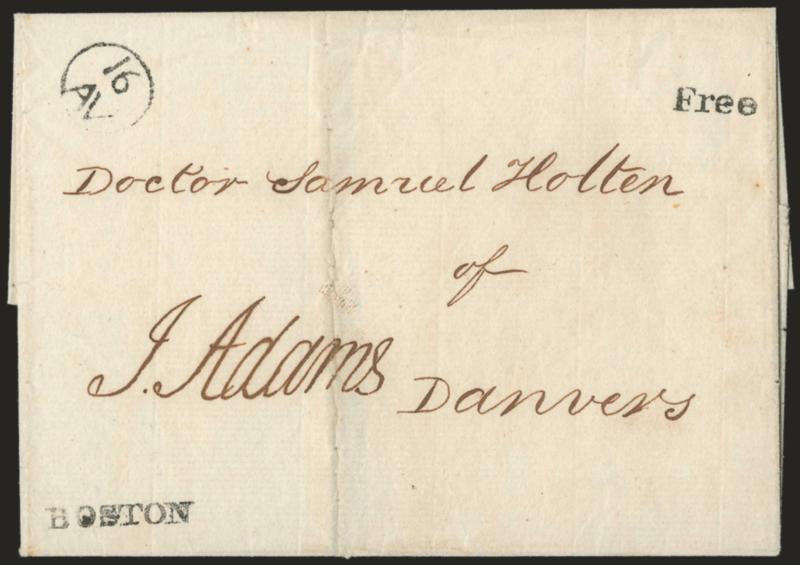 16
AV
Free
Doctor Samuel Holten
of
J. Adams
Danvers
BOSTON